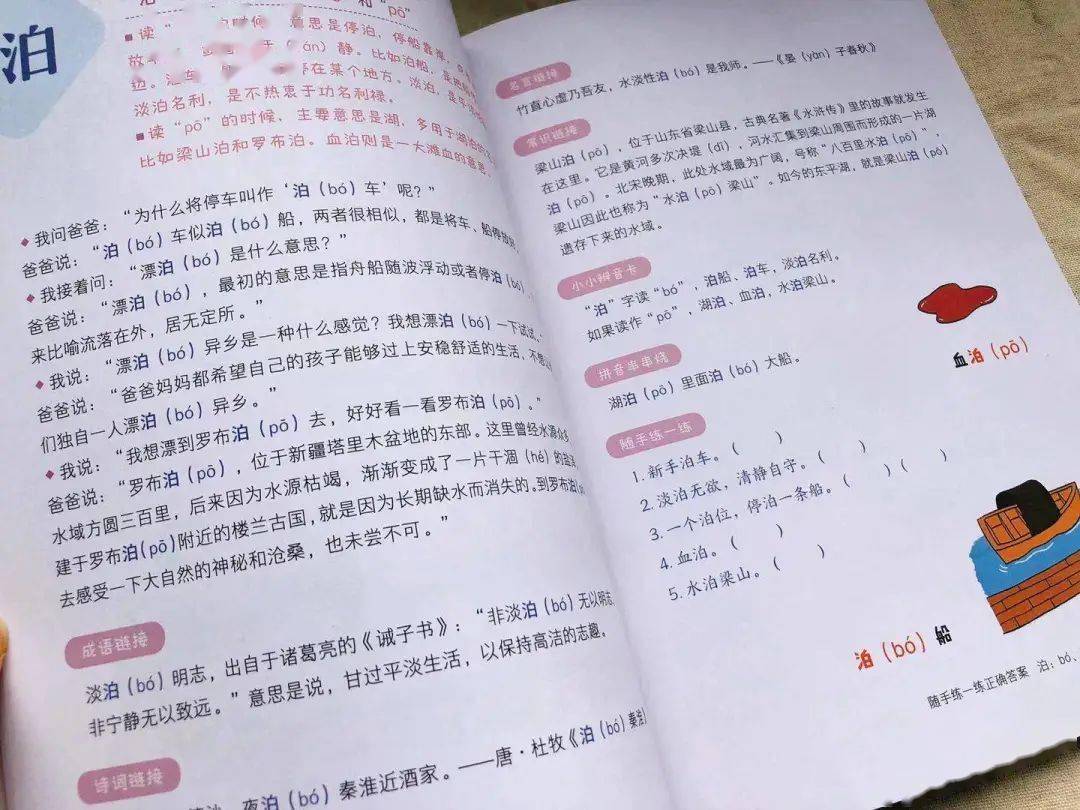 泊
和“pō”
■读“
时候，意思是停泊，停船靠岸，
静。比如泊船，
边。泊车，
在某个地方。淡泊，是
淡泊名利，是不热衷于功名利禄。
■读“pō”的时候，主要意思是湖，多用于湖泊的
比如梁山泊和罗布泊。血泊则是一大滩血的意思。
◆我问爸爸：“为什么将停车叫作‘泊（bó）车’呢？”
爸爸说：“泊（bó）车似泊（bó）船，两者很相似，都是将车、船停放
◆我接着问：“漂泊（bó）是什么意思？”
爸爸说：“漂泊（bó），最初的意思是指舟船随波浮动或者停泊（bó），
来比喻流落在外，居无定所。”
◆我说：“漂泊（bó）异乡是一种什么感觉？我想漂泊（bó）一下试试。”
爸爸说：“爸爸妈妈都希望自己的孩子能够过上安稳舒适的生活，不想
们独自一人漂泊（bó）异乡。”
◆我说：“我想漂到罗布泊（pō）去，好好看一看罗布泊（pō）。”
爸爸说：“罗布泊（pō），位于新疆塔里木盆地的东部。这里曾经水源众多，
水域方圆三百里，后来因为水源枯竭，渐渐变成了一片干涸（hé）的盐泽
建于罗布泊（pō）附近的楼兰古国，就是因为长期缺水而消失的。到罗布泊
去感受一下大自然的神秘和沧桑，也未尝不可。”
成语链接
淡泊（bó）明志，出自于诸葛亮的《诫子书》：“非淡泊（bó）无以明志，
非宁静无以致远。”意思是说，甘过平淡生活，以保持高洁的志趣。
诗词链接
夜泊（bó）秦淮近酒家。——唐·杜牧《泊（bó）秦淮》
名言链接
竹直心虚乃吾友，水淡性泊（bó）是我师。——《晏（yàn）子春秋》
常识链接
梁山泊（pō），位于山东省梁山县，古典名著《水浒传》里的故事就发生
在这里。它是黄河多次决堤（dī），河水汇集到梁山周围而形成的一片湖
泊（pō）。北宋晚期，此处水域最为广阔，号称“八百里水泊（pō）”，
梁山因此也称为“水泊（pō）梁山”。如今的东平湖，就是梁山泊（pō）
遗存下来的水域。
小小辨音卡
“泊”字读“bó”，泊船、泊车，淡泊名利。
如果读作“pō”，湖泊、血泊，水泊梁山。
拼音串串烧
湖泊（pō）里面泊（bó）大船。
随手练一练
1. 新手泊车。（　）
2. 淡泊无欲，清静自守。（　）
3. 一个泊位，停泊一条船。（　）（　）
4. 血泊。（　）
5. 水泊梁山。（　）
血泊（pō）
泊（bó）船
随手练一练正确答案 泊：bó、